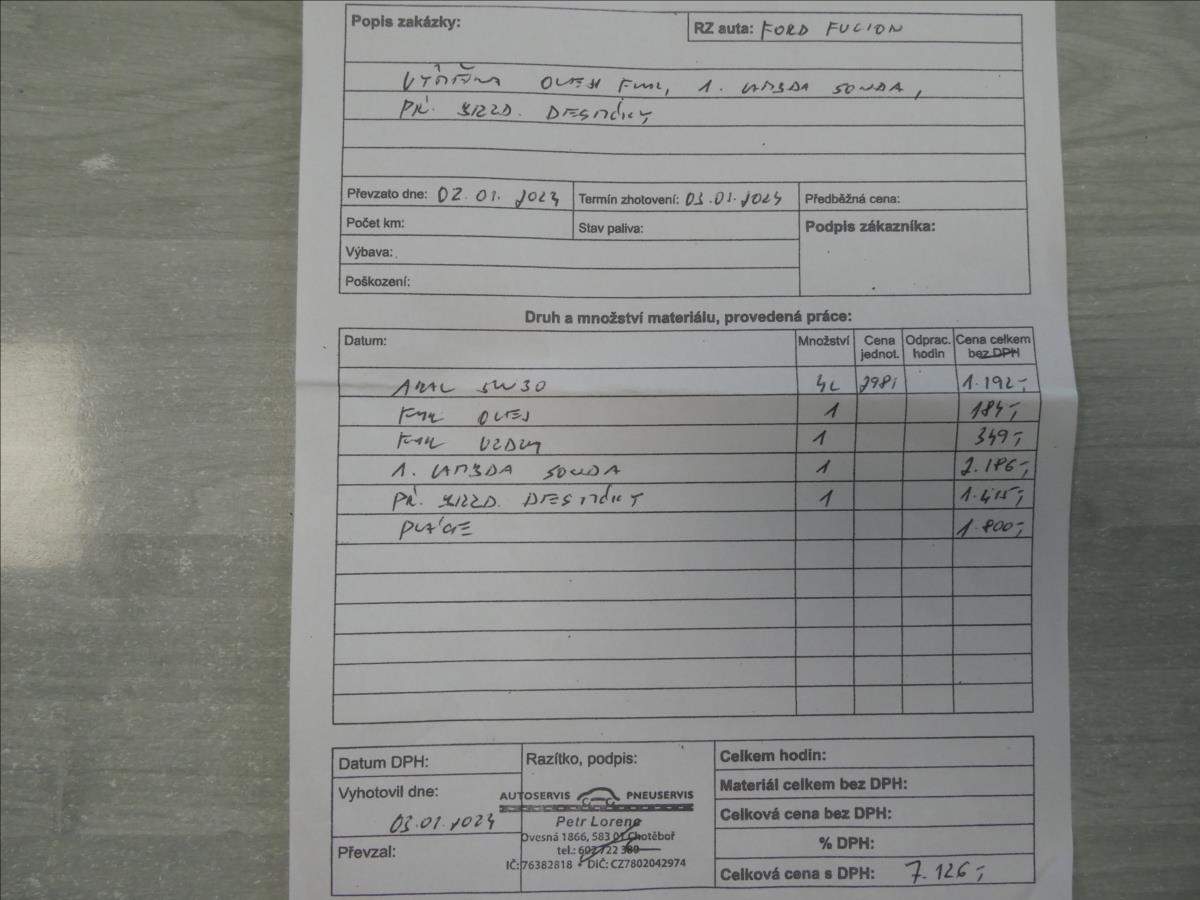 Popis zakázky:
RZ auta: FORD FUCION
VÝMĚNA OLEJ FILTR, 1. LAMBDA SONDA,
PŘ. BRZD. DESTIČKY
Převzato dne: 02.01.2024
Termín zhotovení: 03.01.2024
Předběžná cena:
Počet km:
Stav paliva:
Podpis zákazníka:
Výbava:
Poškození:
Druh a množství materiálu, provedená práce:
Datum: Množství Cena jednot. Odprac. hodin Cena celkem bez DPH
ARAL 5W30 4L 298,- 1.192,-
FILTR OLEJ 1 184,-
FILTR VZDUCH 1 349,-
1. LAMBDA SONDA 1 2.186,-
PŘ. BRZD. DESTIČKY 1 1.415,-
PRÁCE 1.800,-
Datum DPH:
Razítko, podpis:
Celkem hodin:
Vyhotovil dne:
03.01.2024
Materiál celkem bez DPH:
AUTOSERVIS PNEUSERVIS
Petr Lorenc
Ovesná 1866, 583 01 Chotěboř
tel.: 607 722 380
IČ: 76382818 • DIČ: CZ7802042974
Celková cena bez DPH:
% DPH:
Převzal:
Celková cena s DPH: 7.126,-